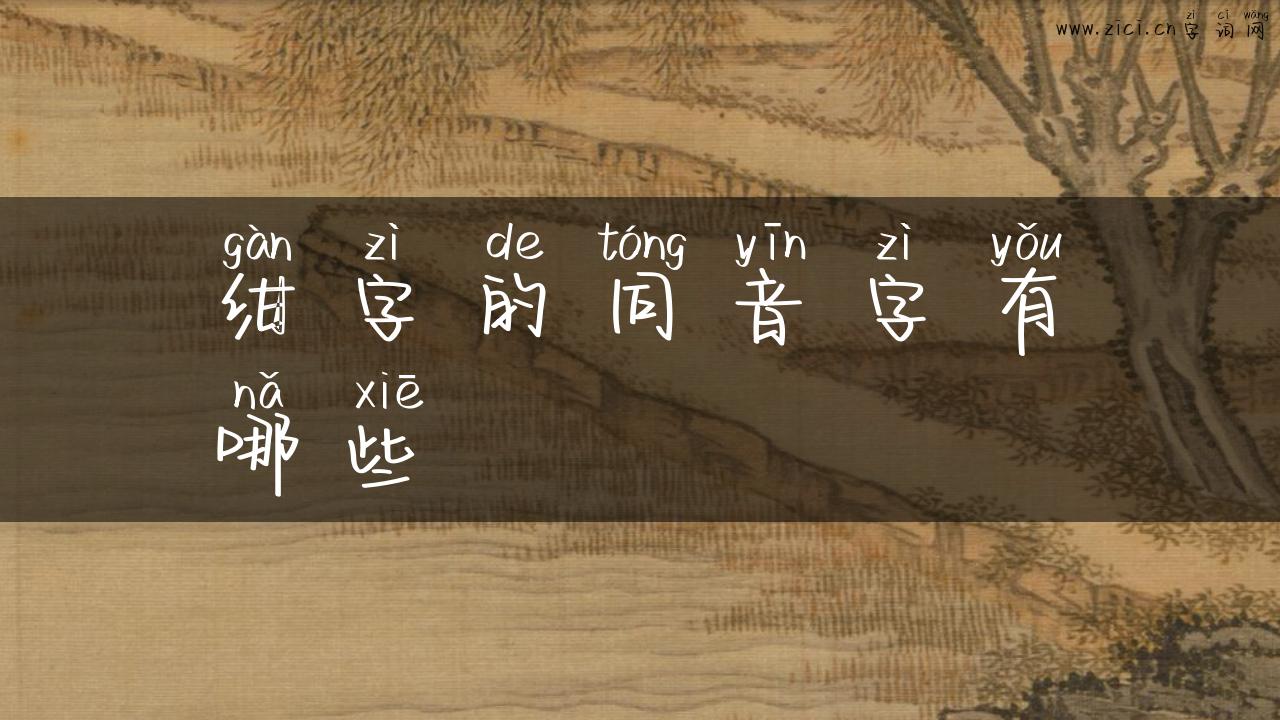 zì cí wǎng
www.zici.cn字词网
gàn zì de tóng yīn zì yǒu
绀字的同音字有
nǎ xiē
哪些